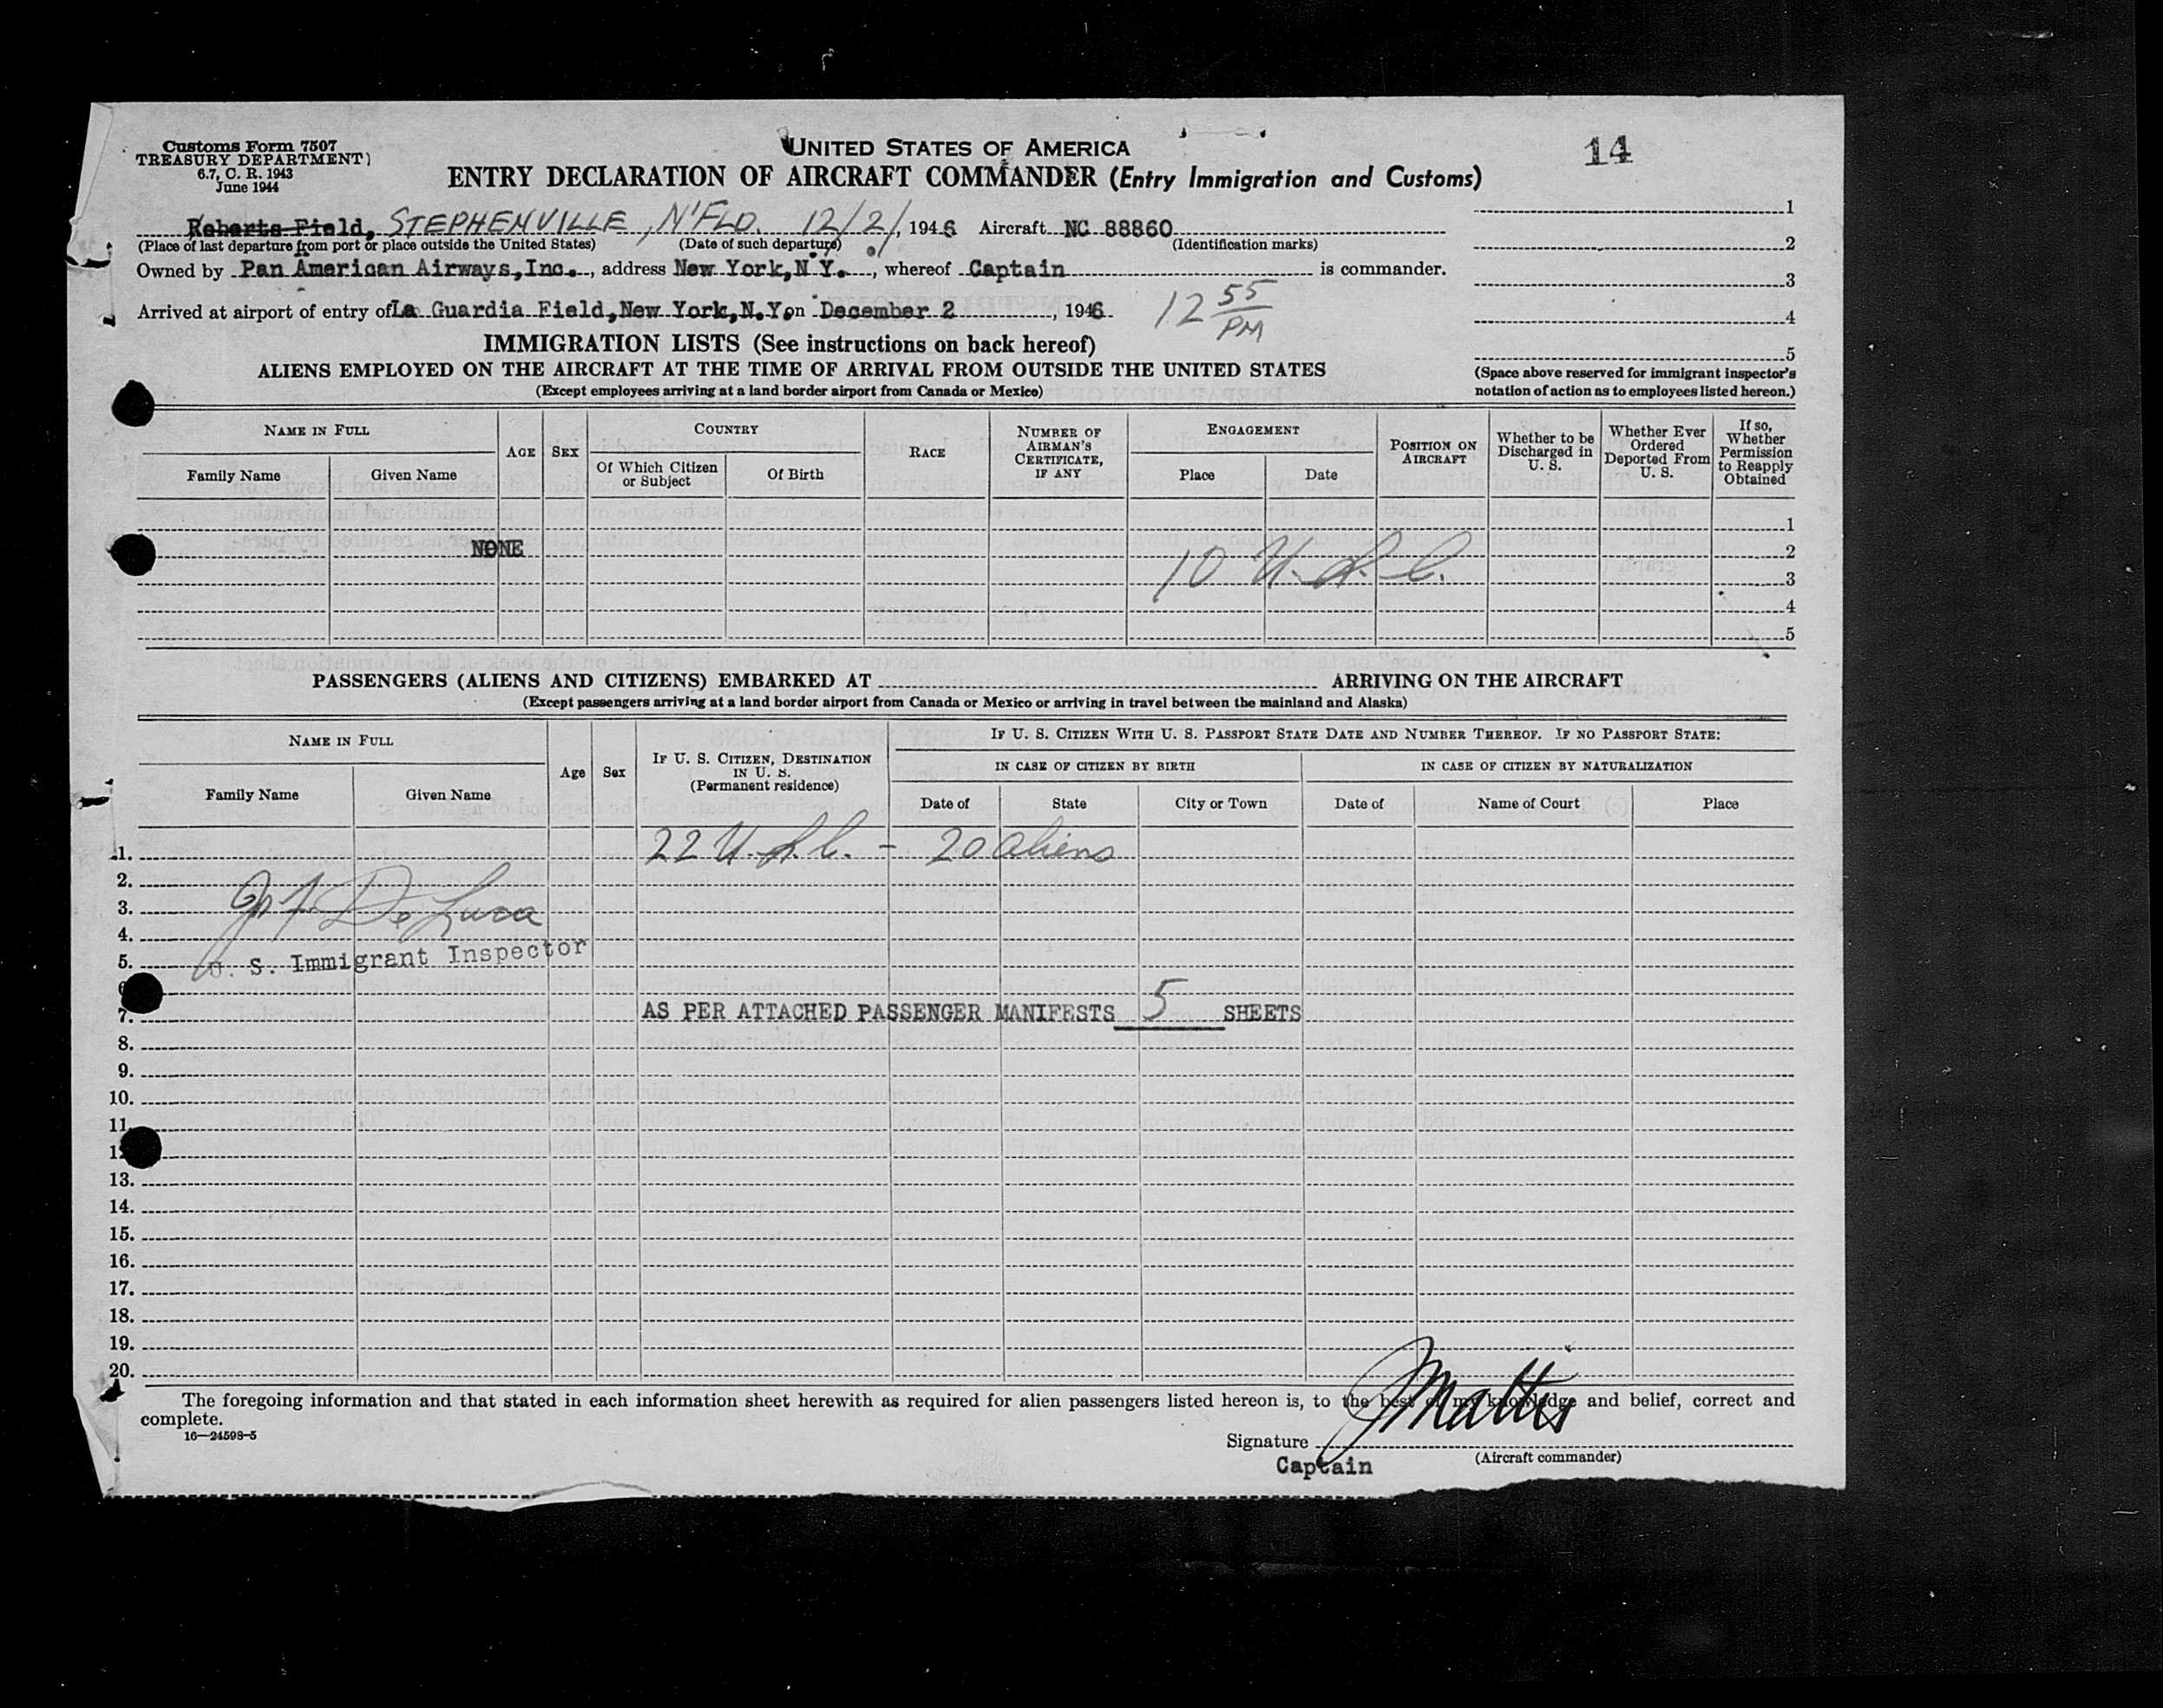 Customs Form 7507
TREASURY DEPARTMENT)
6.7, C. R. 1943
June 1944
UNITED STATES OF AMERICA
14
ENTRY DECLARATION OF AIRCRAFT COMMANDER (Entry Immigration and Customs)
Roberts Field, STEPHENVILLE, N'FLD. 12/2/, 1946 Aircraft NC 88860
(Place of last departure from port or place outside the United States) (Date of such departure) (Identification marks)
Owned by Pan American Airways, Inc., address New York, N.Y., whereof Captain is commander.
Arrived at airport of entry of La Guardia Field, New York, N.Y. on December 2, 1946 12 55 PM
1
2
3
4
5
(Space above reserved for immigrant inspector's
notation of action as to employees listed hereon.)
IMMIGRATION LISTS (See instructions on back hereof)
ALIENS EMPLOYED ON THE AIRCRAFT AT THE TIME OF ARRIVAL FROM OUTSIDE THE UNITED STATES
(Except employees arriving at a land border airport from Canada or Mexico)
NAME IN FULL
Family Name
Given Name
AGE
SEX
COUNTRY
Of Which Citizen
or Subject
Of Birth
RACE
NUMBER OF
AIRMAN'S
CERTIFICATE,
IF ANY
ENGAGEMENT
Place
Date
POSITION ON
AIRCRAFT
Whether to be
Discharged in
U. S.
Whether Ever
Ordered
Deported From
U. S.
If so,
Whether
Permission
to Reapply
Obtained
1
NONE 2
10 U.S.C. 3
4
5
PASSENGERS (ALIENS AND CITIZENS) EMBARKED AT ARRIVING ON THE AIRCRAFT
(Except passengers arriving at a land border airport from Canada or Mexico or arriving in travel between the mainland and Alaska)
NAME IN FULL
Family Name
Given Name
Age
Sex
IF U. S. CITIZEN, DESTINATION
IN U. S.
(Permanent residence)
IF U. S. CITIZEN WITH U. S. PASSPORT STATE DATE AND NUMBER THEREOF. IF NO PASSPORT STATE:
IN CASE OF CITIZEN BY BIRTH
IN CASE OF CITIZEN BY NATURALIZATION
Date of
State
City or Town
Date of
Name of Court
Place
1. 22 U.S.C. - 20 aliens
2.
3. De Luca
4.
5. U. S. Immigrant Inspector
6
7. AS PER ATTACHED PASSENGER MANIFESTS 5 SHEETS
8.
9.
10.
11.
12
13.
14.
15.
16.
17.
18.
19.
20.
The foregoing information and that stated in each information sheet herewith as required for alien passengers listed hereon is, to the best of my knowledge and belief, correct and
complete.
16—24598-5
Signature
(Aircraft commander)
Captain